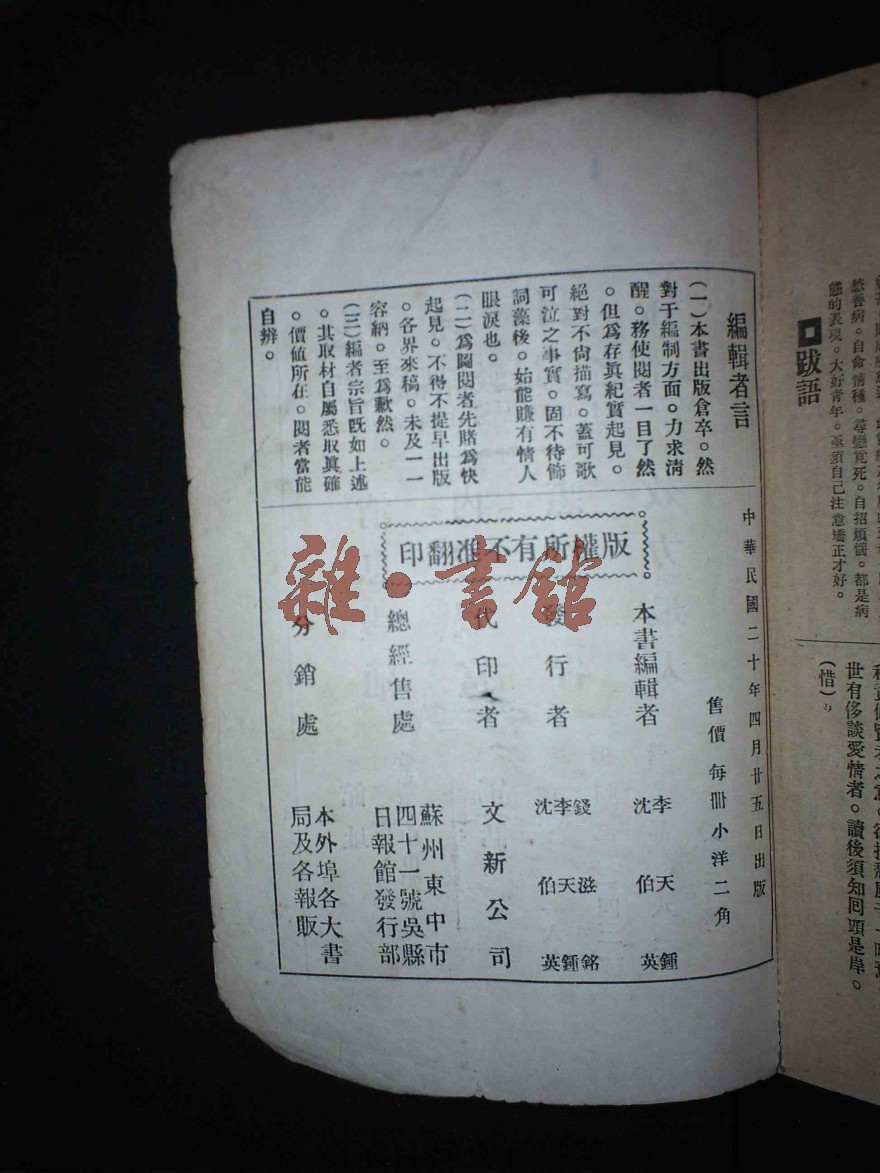 愁善病。自命情種。尋戀覓死。自招煩惱。都是病
態的表現。大好青年。亟須自己注意矯正才好。
跋語
世有侈談愛情者。讀後須知囘頭是岸。
(惜)
編輯者言
(一)本書出版倉卒。然
對于編制方面。力求清
醒。務使閱者一目了然
。但爲存眞紀實起見。
絕對不尙描寫。蓋可歌
可泣之事實。固不待飾
詞藻後。始能賺有情人
眼淚也。
(二)爲圖閱者先賭爲快
起見。不得不提早出版
。各界來稿。未及一一
容納。至爲歉然。
(三)編者宗旨旣如上述
。其取材自屬悉取眞確
。價值所在。閱者當能
自辨。
中華民國二十年四月廿五日出版
售價每冊小洋二角
版權所有不准翻印
本書編輯者
李天鍾
沈伯英
發行者
錢滋銘
李天鍾
沈伯英
代印者
文新公司
總經售處
蘇州東中市
四十一號吳縣
日報館發行部
分銷處
本外埠各大書
局及各報販
雜·書館